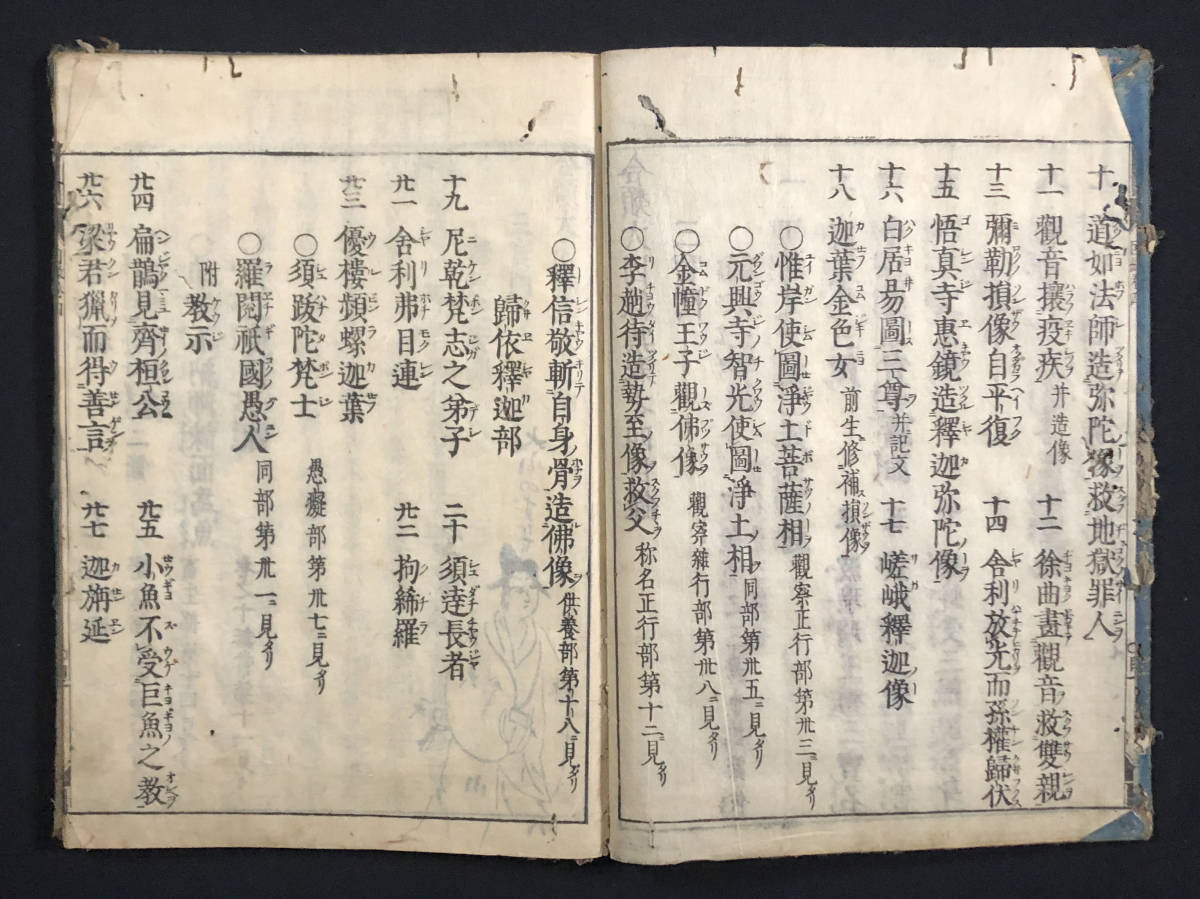 十 道如法師造弥陀像救地獄罪人
十一 觀音攘疫疾 并造像 十二 徐曲畫觀音救雙親
十三 彌勒損像自平復 十四 舍利放光而孫權歸伏
十五 悟真寺惠鏡造釋迦弥陀像
十六 白居易圖三尊 并記文 十七 嵯峨釋迦像
十八 迦葉金色女 前生修補損像
〇惟岸使圖淨土菩薩相 觀察正行部第卅三ニ見タリ
〇元興寺智光使圖淨土相 同部第卅五ニ見タリ
〇金幢王子觀佛像 觀察雜行部第卅八ニ見タリ
〇李趙待造勢至像救父 称名正行部第十二ニ見タリ
〇釋信敬斬自身骨造佛像 供養部第十八ニ見タリ
歸依釋迦部
十九 尼乾梵志之弟子 二十 須達長者
廿一 舍利弗目連 廿二 拘絺羅
廿三 優樓頻螺迦葉
〇須跋陀梵士 愚癡部第卅七ニ見タリ
〇羅閲祇國愚人 同部第卅一ニ見タリ
附 教示
廿四 扁鵲見齊桓公 廿五 小魚不受巨魚之教
廿六 梁君獵而得善言 廿七 迦旃延